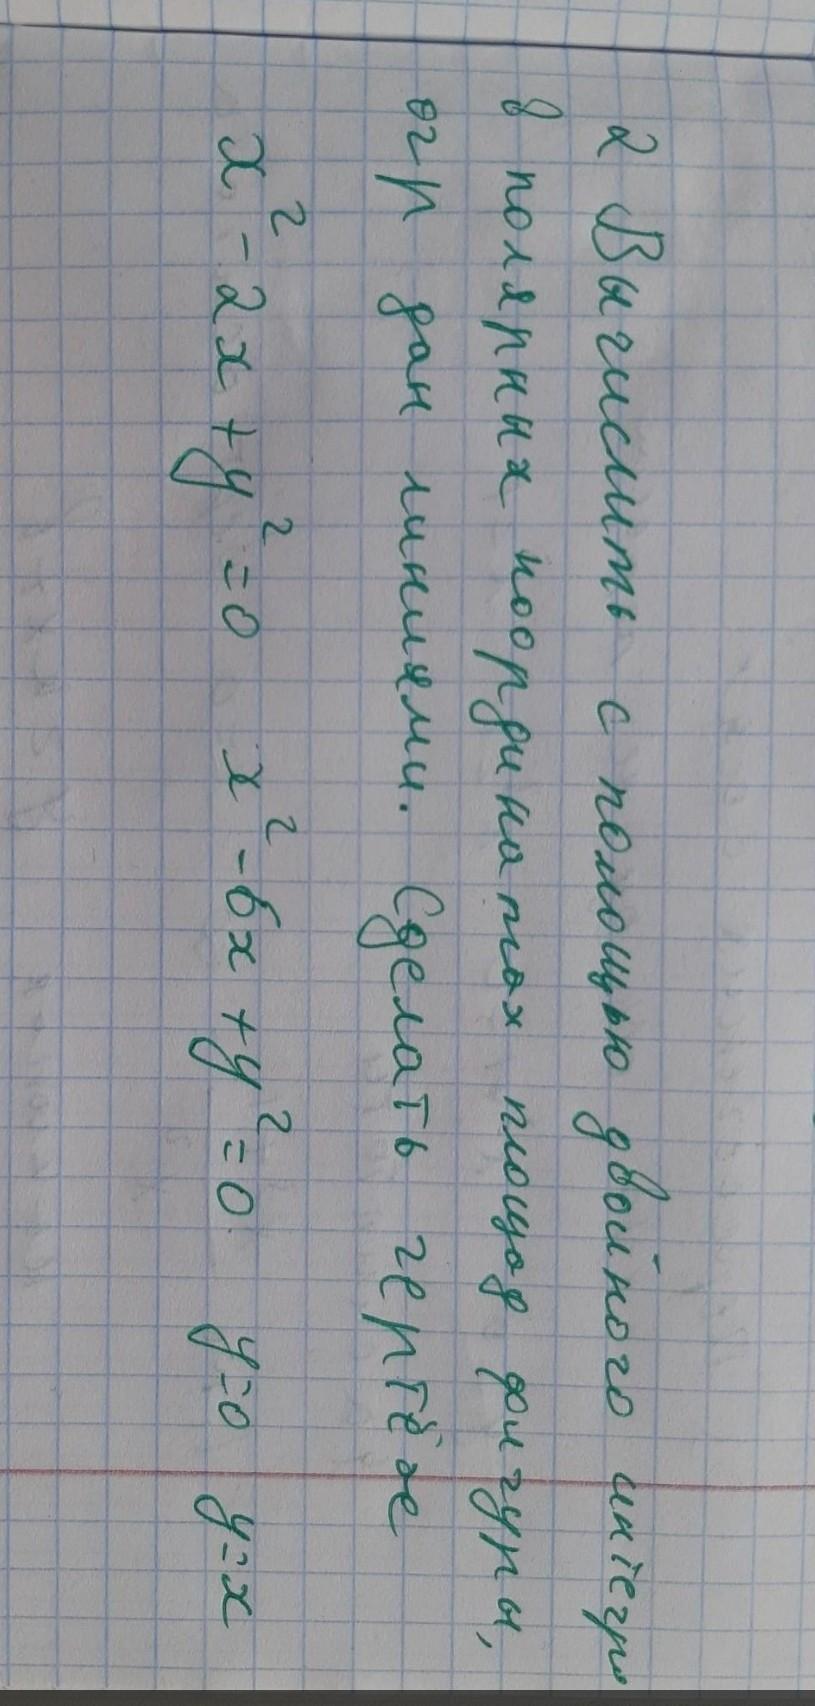 2 Вычислить с помощью двойного интегр
в полярных координатах площад фигуры,
огр дан линиями. Сделать чертёж
x² - 2x + y² = 0 x² - 6x + y² = 0 y = 0 y = x